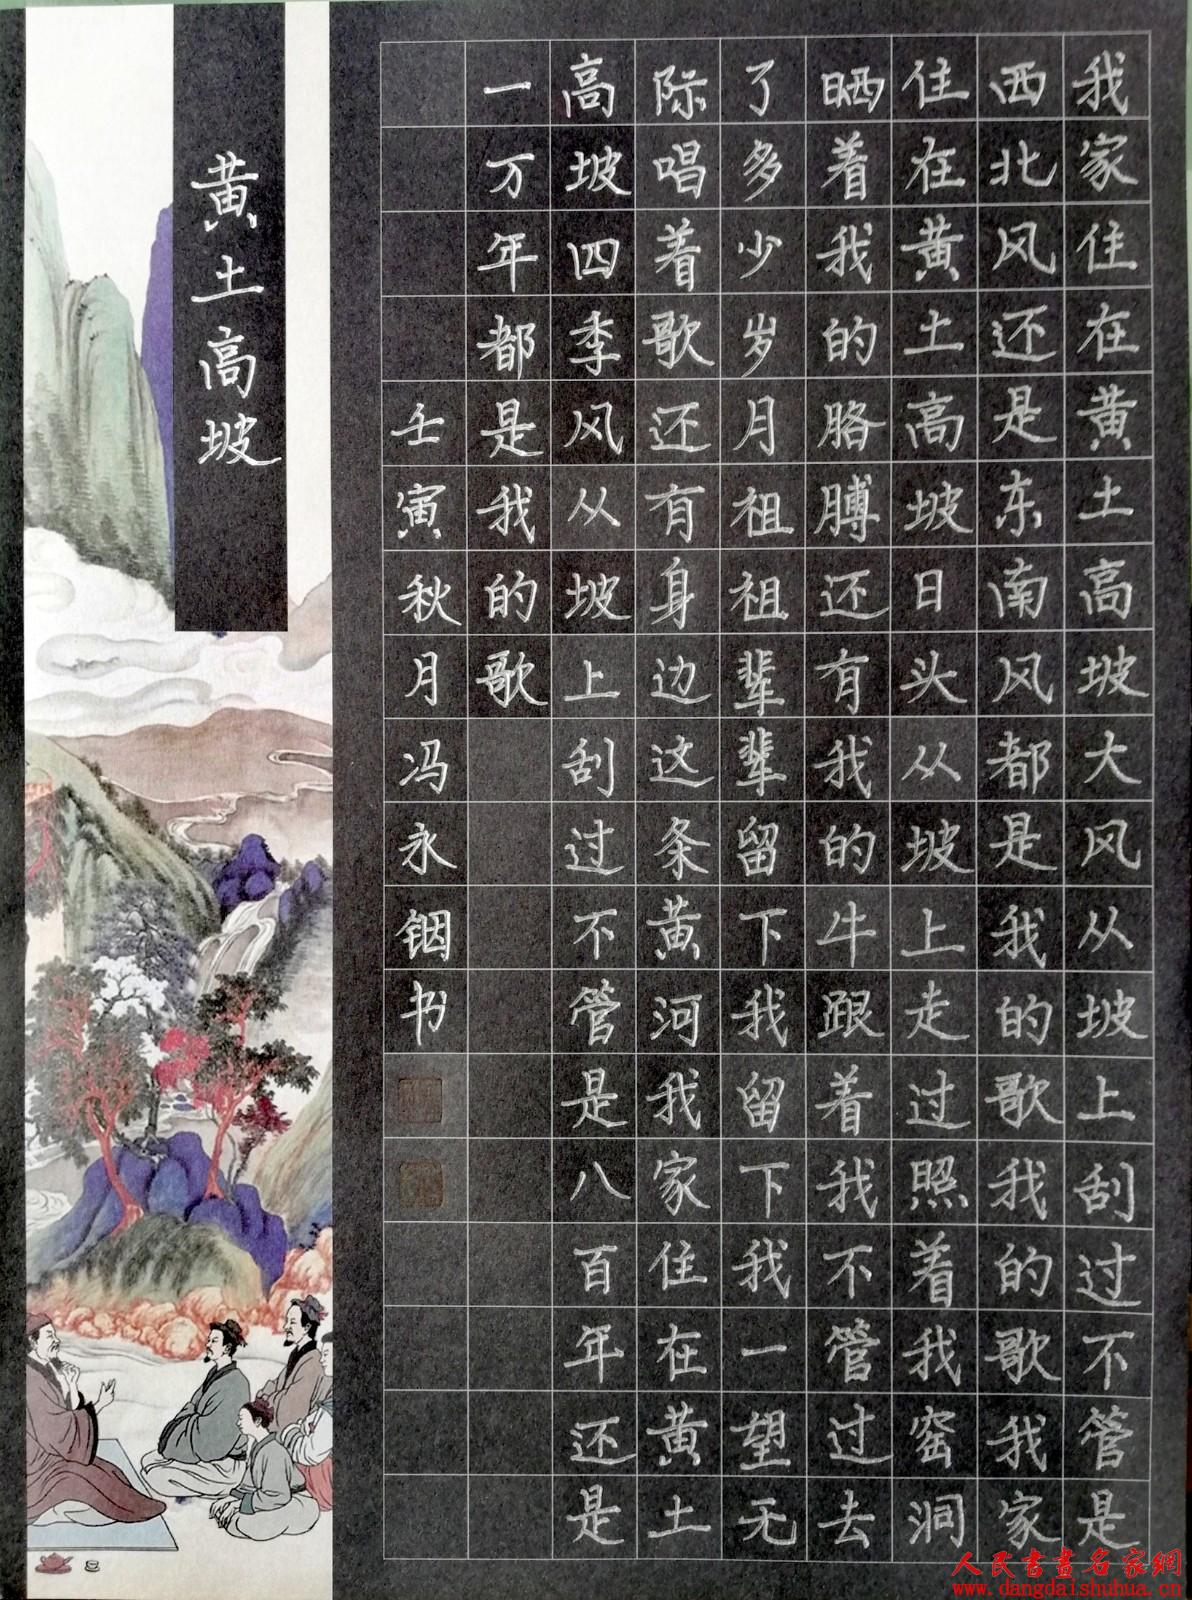 我家住在黄土高坡大风从坡上刮过不管是
西北风还是东南风都是我的歌我的歌我家
住在黄土高坡日头从坡上走过照着我窑洞
晒着我的胳膊还有我的牛跟着我不管过去
了多少岁月祖祖辈辈留下我留下我一望无
际唱着歌还有身边这条黄河我家住在黄土
高坡四季风从坡上刮过不管是八百年还是
一万年都是我的歌
壬寅秋月冯永铟书
黄土高坡
人民书画名家網
www.dangdaishuhua.cn